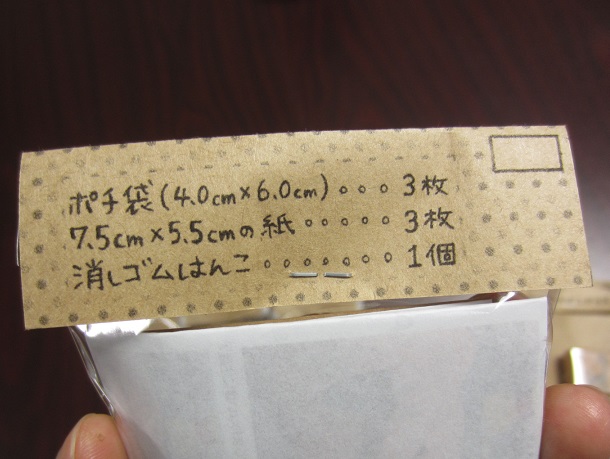 ポチ袋(4.0cm×6.0cm)。。。3枚
7.5cm×5.5cmの紙。。。。。3枚
消しゴムはんこ。。。。。。。1個